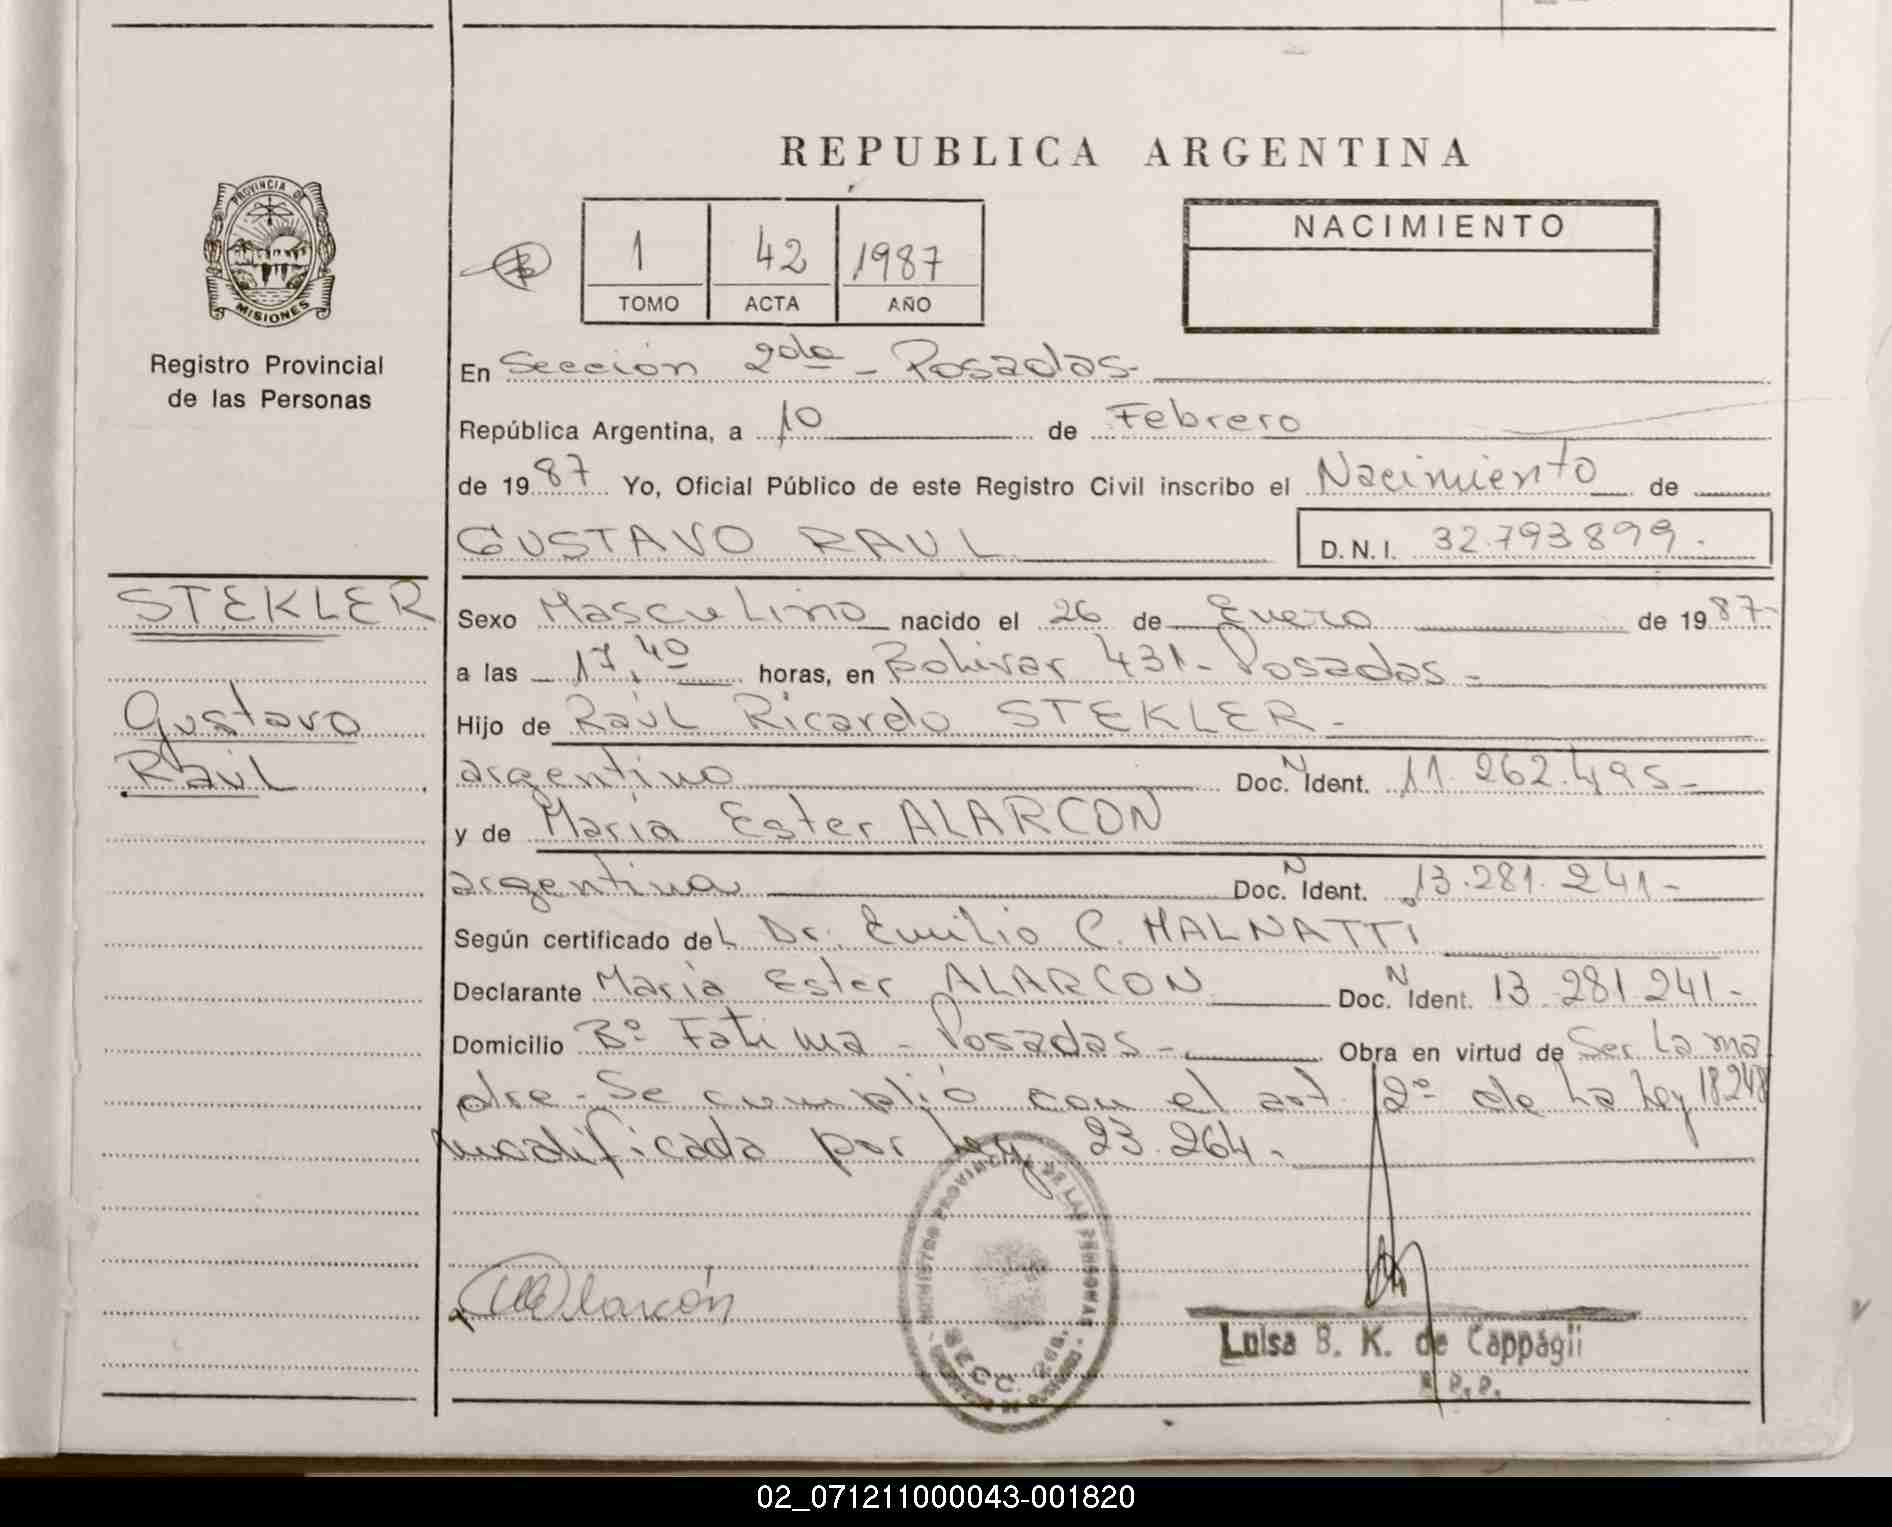 REPUBLICA ARGENTINA
PROVINCIA DE
MISIONES
Registro Provincial
de las Personas
1 42 1987
TOMO ACTA AÑO
NACIMIENTO
En Sección 2da - Posadas-
República Argentina, a 10 de Febrero
de 1987 Yo, Oficial Público de este Registro Civil inscribo el Nacimiento de
GUSTAVO RAUL D.N.I. 32.793.899.-
STEKLER
Gustavo
Raúl
Sexo Masculino nacido el 26 de Enero de 1987-
a las 17,40 horas, en Bolivar 431- Posadas-
Hijo de Raúl Ricardo STEKLER-
argentino Doc. N Ident. 11.262.495-
y de María Ester ALARCON
argentina Doc. N Ident. 13.281.241-
Según certificado del Dr. Emilio C. MALNATTI
Declarante María Ester ALARCON Doc. N Ident. 13.281.241-
Domicilio Bº Fatima - Posadas- Obra en virtud de Ser La ma
dre- Se cumplió con el art. 2º de La Ley 18248
modificada por Ley 23.264-
Alarcón
SECC. 2da.
Luisa B. K. de Cappagli
02_071211000043-001820